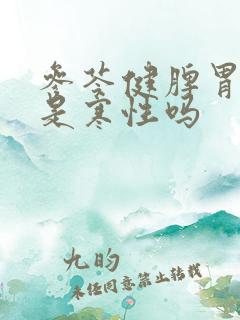 参苓健脾胃
是寒性吗
九昀
未经同意禁止转载